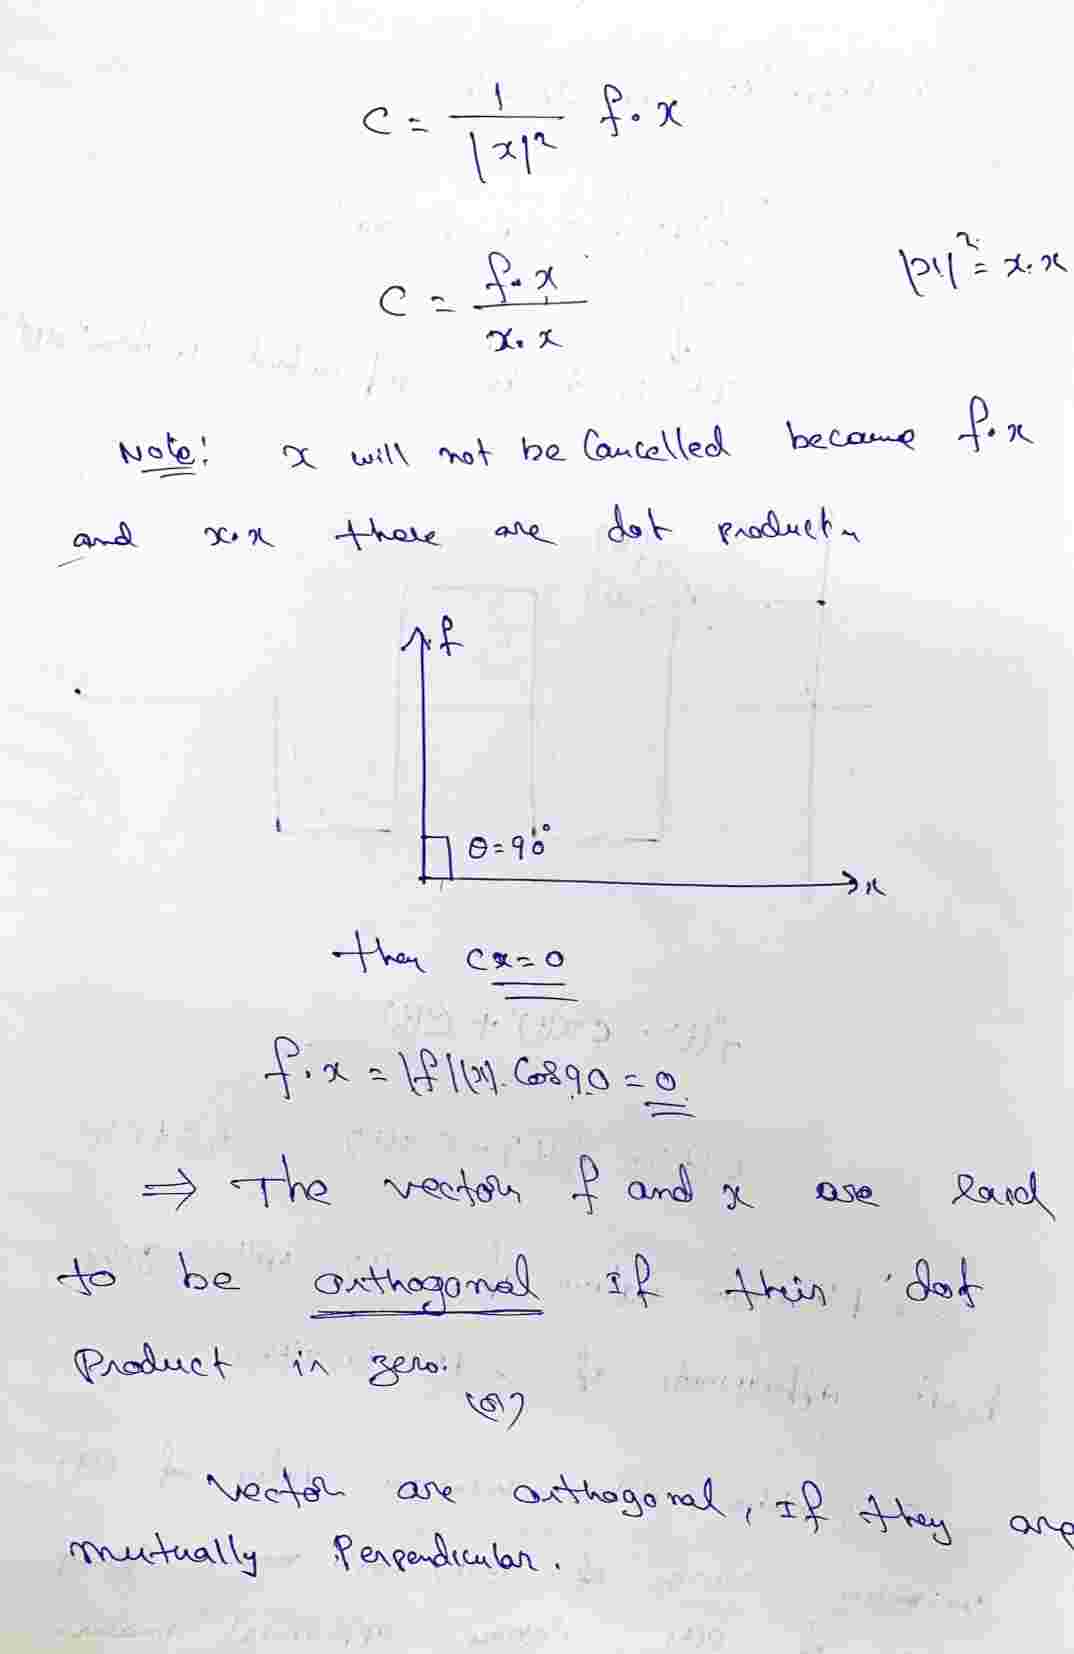 C = 1/|x|² f·x
C = f·x / x·x    |x|² = x·x
Note: x will not be Cancelled because f·x
and x·x there are dot products
f
θ=90°
x
then cx=0
f·x = |f||x|. Cos90 = 0
⇒ The vectors f and x are said
to be orthogonal If this dot
Product is zero.
(or)
vectors are orthogonal, If they are
mutually Perpendicular.